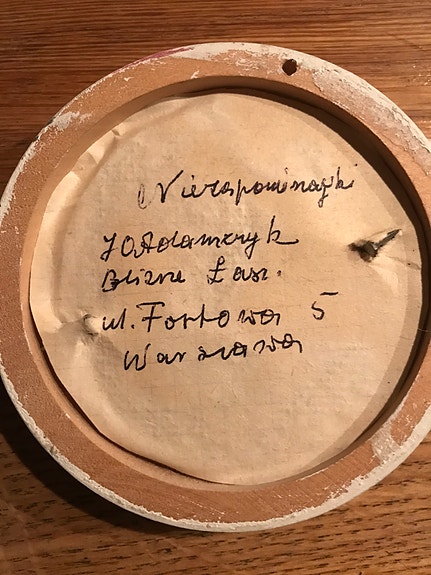 Niezapominajki
J Adamczyk
Blizne Łasz.
ul. Fortowa 5
Warszawa